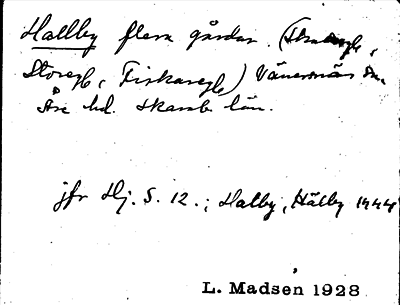 Hallby flera gårdar (
Storegb, Fiskaregb) Vänersnäs sn.
Åse hd. Skarab. län.
jfr Hj. S. 12.; Halby, Hälby 1444
L. Madsen 1928